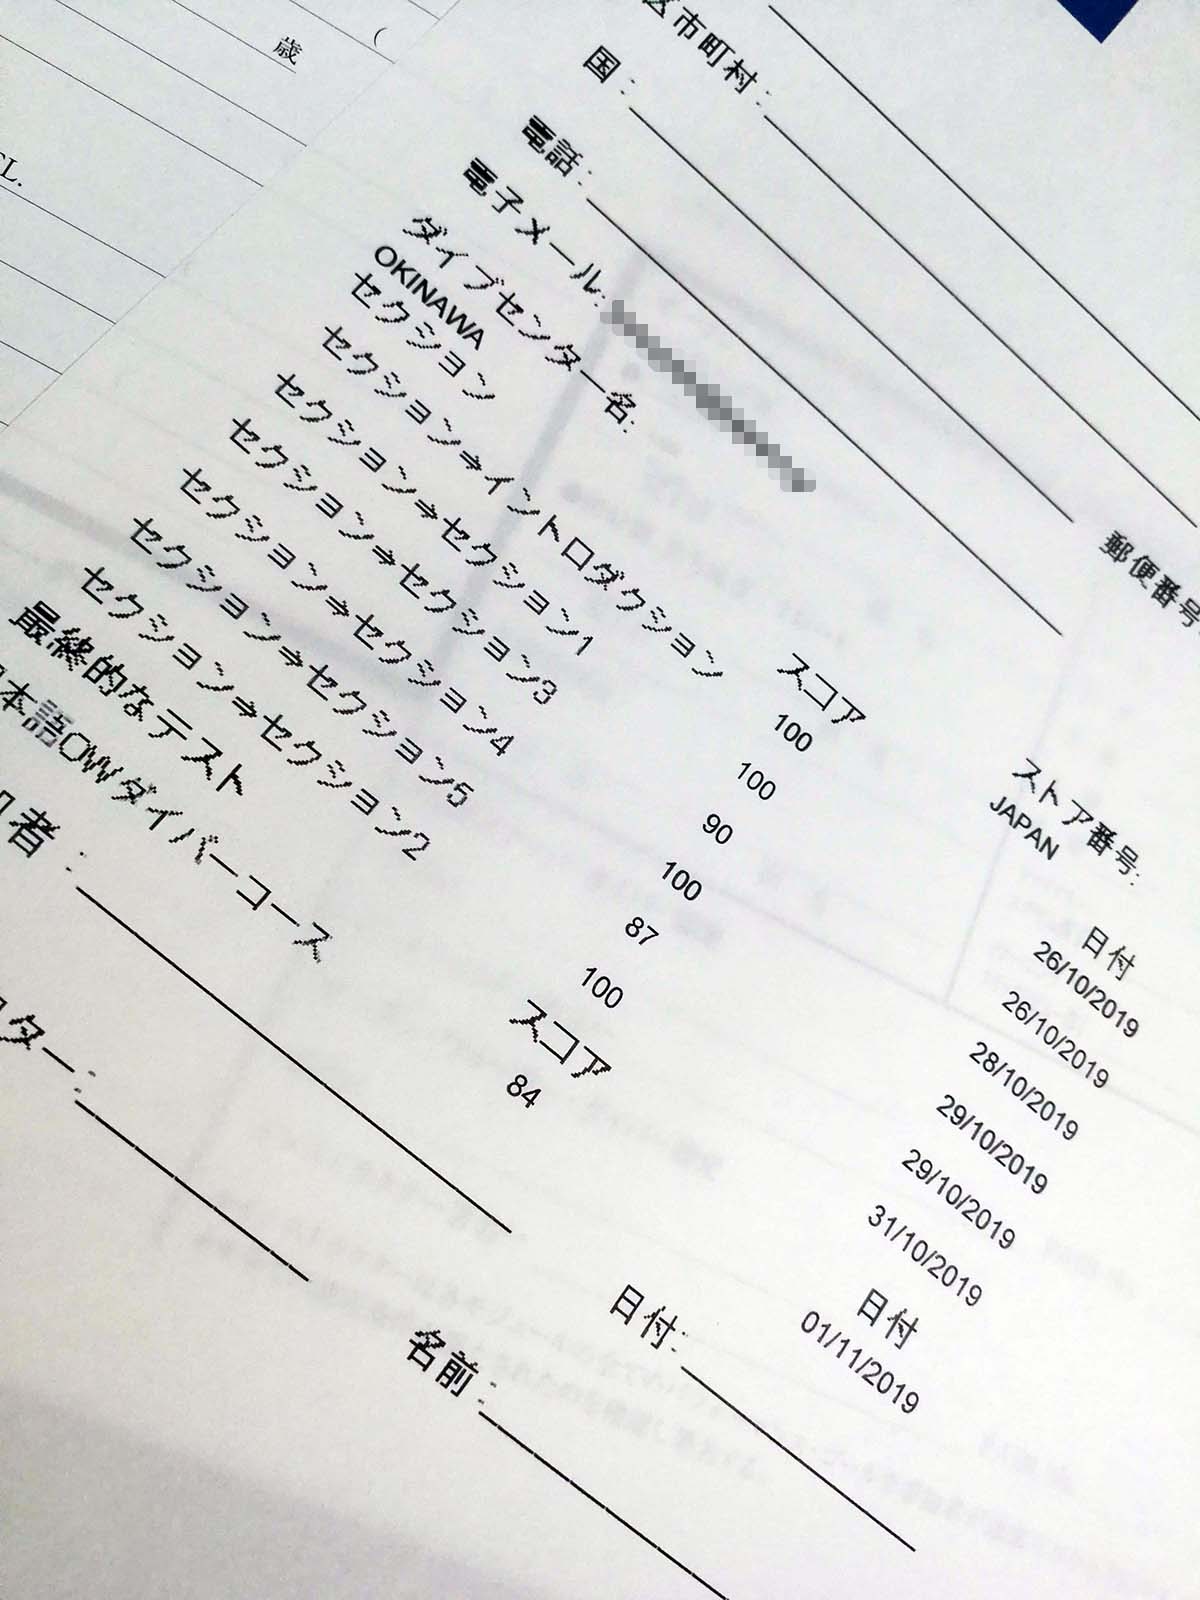 歳 (
CL.
区市町村:
国:
郵便番号
電話:
電子メール:
ダイブセンター名: ストア番号:
OKINAWA JAPAN
セクション スコア 日付
セクション⇒イントロダクション 100 26/10/2019
セクション⇒セクション1 100 26/10/2019
セクション⇒セクション3 90 28/10/2019
セクション⇒セクション4 100 29/10/2019
セクション⇒セクション5 87 29/10/2019
セクション⇒セクション2 100 31/10/2019
最終的なテスト スコア 日付
本語OWダイバーコース 84 01/11/2019
者: 日付:
ター: 名前: